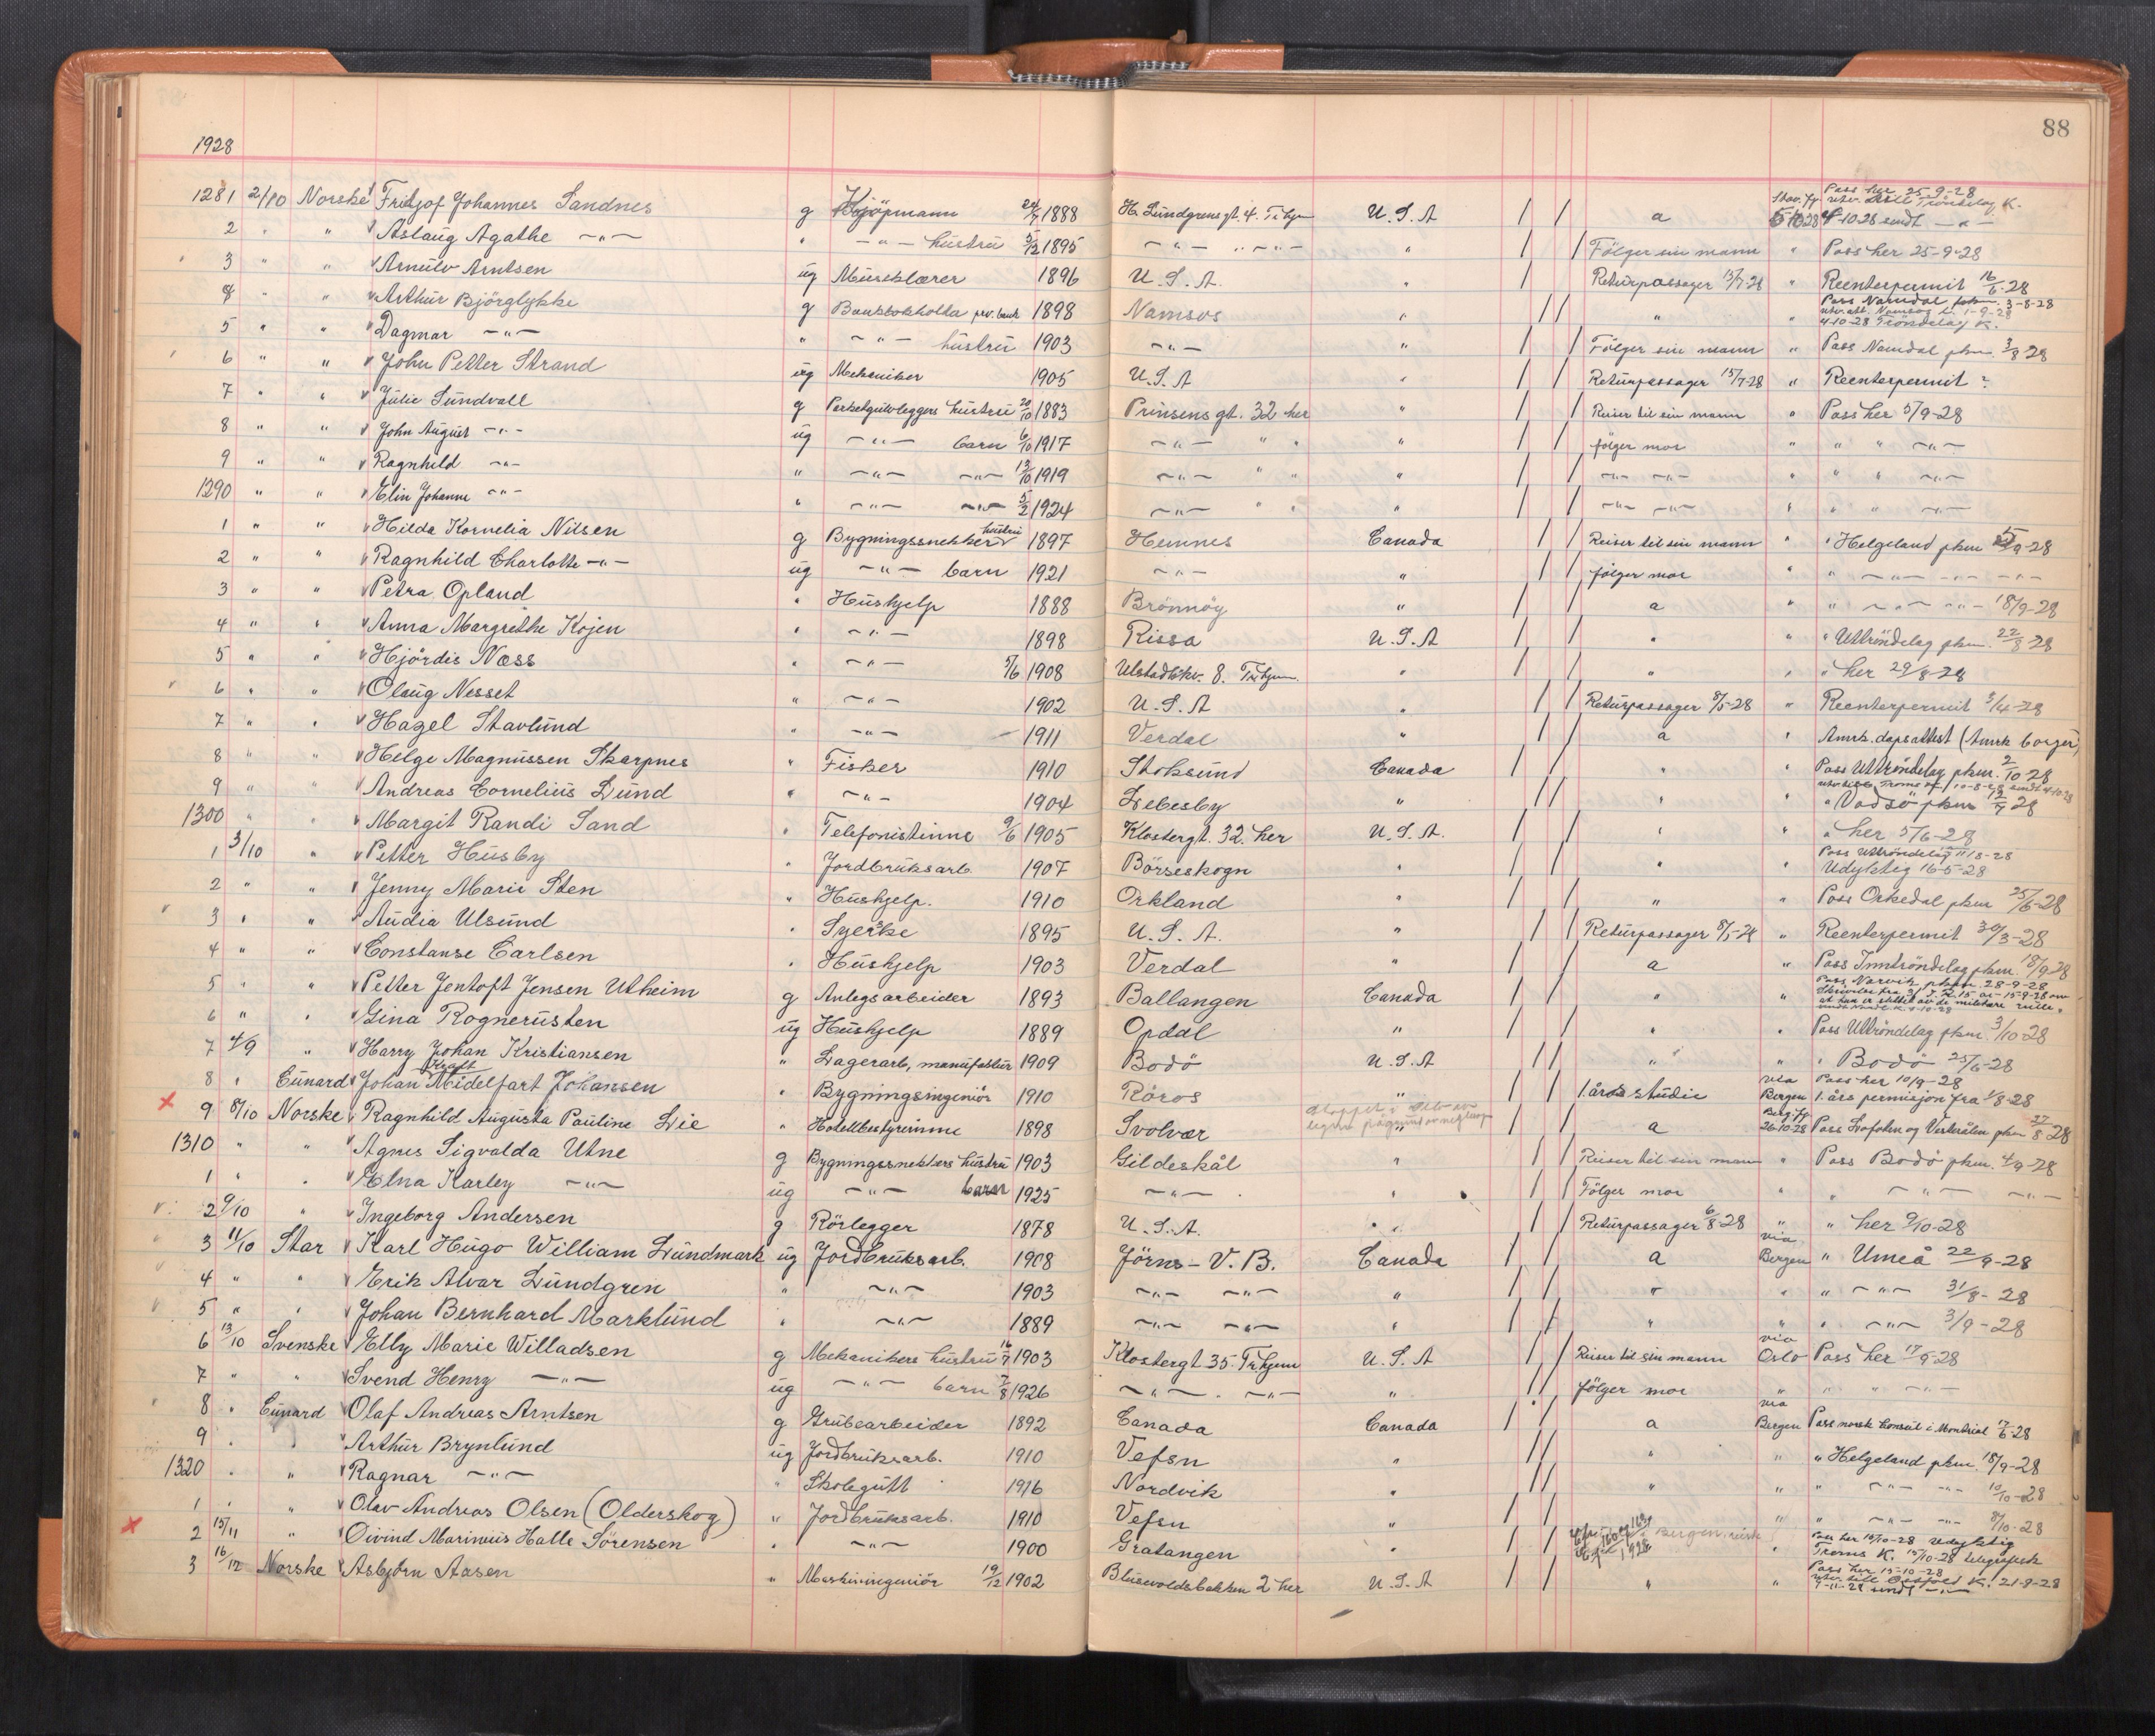 88
1928
1281 2/10 Norske Fritjof Johannes Sandnes g Kjöpmann 24/7 1888 H. Lundgrens gt. 4. Tr.hjem U.S.A / / a Stav.fj 5-10-28 Pass her 25-9-28 utsr. Tröndelag K. 4-10-28 sendt -"-
2 " " Aslaug Agathe -"- " -"- hustru 5/12 1895 -"- " -"- " / / Fölger sin mann " Pass her 25-9-28
3 " " Arnulv Arntsen ug Murerlærer 1896 U.S.A. " / Returpassager 15/7-28 " Reenterpermit 16/6-28
4 " " Arthur Bjørglykke g Bankbokholder prv.bank 1898 Namsos " / / " " Pass Namdal pkm. 3-8-28 4-10-28 Tröndelag K.
5 " " Dagmar -"- " -"- hustru 1903 -"- " / / Fölger sin mann " Pass Namdal pkm. 3/8 28
6 " " John Petter Strand ug Mekaniker 1905 U.S.A " / / Returpassager 15/7-28 " Reenterpermit ?
7 " " Julie Sundvall g Parketgulvleggers hustru 20/10 1883 Prinsens gt. 32 her " / / Reiser til sin mann " Pass her 5/9-28
8 " " John August -"- ug -"- barn 6/10 1917 -"- " " " / / fölger mor " " " -"-
9 " " Ragnhild -"- " -"- -"- 13/10 1919 -"- " " " / / -"- -"- " " " -"-
1290 " " Elin Johanne -"- " -"- -"- 5/2 1924 -"- " " " / / -"- -"- " " " -"-
1 " " Hilda Kornelia Nilsen g Bygningssnekker hustru 1897 Hemnes Canada / / Reiser til sin mann " " Helgeland pkm 9-28
2 " " Ragnhild Charlotte -"- ug -"- barn 1921 -"- " / / fölger mor " " -"- -"- -"-
3 " " Petra Opland " Hushjelp 1888 Brönnöy " / / a " " -"- -"- 18/9-28
4 " " Anna Margrethe Kojen " -"- 1898 Rissa U.S.A / / " " " Uttröndelag pkm. 22/8 28
5 " " Hjördis Næss " -"- 5/6 1908 Ulstadlökv. 8. Tr.hjem " / / " " " her 29/8-28
6 " " Olaug Nesset " -"- 1902 U.S.A " / / Returpassager 8/5-28 " Reenterpermit 3/4-28
7 " " Hazel Stavlund " -"- 1911 Verdal " / / a " Amrk. dåpsattest (Amrk borger)
8 " " Helge Magnussen Skarpnes " Fisker 1910 Stoksund Canada / / " " Pass Uttröndelag pkm. 2/10 28
9 " " Andreas Cornelius Lund " -"- 1904 Lebesby " / / " " 10-8-28 sendt 4-10-28 " Vadsö pkm 12/7 28
1300 " " Margit Randi Sand " Telefonistinne 9/6 1905 Klostergt. 32. her U.S.A. / / " " " her 5/6-28
1 3/10 " Petter Husby " Jordbruksarb. 1907 Börseskogn " / / " " Pass Uttröndelag 11/8-28 Udyktig 16-5-28
2 " " Jenny Marie Sten " Hushjelp. 1910 Orkland " / / " " Pass Orkedal pkm 25/6-28
3 " " Audia Ulsund " Syerske 1895 U.S.A. " / / Returpassager 8/5-28 " Reenterpermit 30/3-28
4 " " Constanse Carlsen " Hushjelp 1903 Verdal " / / a " Pass Inntröndelag pkm. 18/9 28
5 " " Petter Jentoft Jensen Utheim g Anlegsarbeider 1893 Ballangen Canada / / " " Pass Narvik pkm. 28-9-28 at han er slettet av de militære ruller
6 " " Gina Rognerusten ug Hushjelp 1889 Opdal " / / " " Pass Uttröndelag pkm. 3/10-28
7 4/9 " Harry Johan Kristiansen " Lagerarb, manufaktur 1909 Bodö U.S.A / / " " " Bodö 25/6-28
8 " Cunard Johan Kraft Midelfart Johansen " Bygningsingeniör 1910 Röros " / / 1. års studie via Bergen Pass her 10/9-28 1. års permisjon fra 1/8-28
9 8/10 Norske Ragnhild Augusta Pauline Lie " Hotellbestyrinne 1898 Svolvær " / / a Berg.fj 26-10-28 Pass Lofoten og Vesterålen pkm 27/8 28
1310 " " Agnes Sigvalda Utne g Bygningssnekkers hustru 1903 Gildeskål " / / Reiser til sin mann " Pass Bodö pkm. 4/9-28
1 " " Elna Karley -"- ug -"- barn 1925 -"- " / / Fölger mor " " -"- -"-
2 9/10 " Ingeborg Andersen g Rörlegger 1878 U.S.A. " / / Returpassager 6/8-28 " " her 9/10-28
3 11/10 Star Karl Hugo William Lundmark ug Jordbruksarb. 1908 Jörns - V.B. Canada / / a via Bergen " Umeå 22/9-28
4 " " Erik Alvar Lundgren " -"- 1903 -"- -"- " / / " " " -"- 31/8-28
5 " " Johan Bernhard Marklund " -"- 1889 -"- -"- " / / " " " -"- 3/9-28
6 13/10 Svenske Elly Marie Willadsen g Mekanikers hustru 16/7 1903 Klostergt 35. Tr.hjem U.S.A / / Reiser til sin mann via Oslo Pass her 17/9-28
7 " " Svend Henry -"- ug -"- barn 7/8 1926 -"- -"- " / / fölger mor " " " -"-
8 " Cunard Olaf Andreas Arntsen g Grubearbeider 1892 Canada Canada / / a via Bergen Pass norsk konsul i Montrial 17/6-28
9 " " Arthur Brynlund ug Jordbruksarb. 1910 Vefsn " / / " " " Helgeland pkm. 18/9-28
1320 " " Ragnar -"- " Skolegutt 1916 Nordvik " / / " " " -"- -"- 10/10-28
1 " " Olav Andreas Olsen (Olderskog) " Jordbruksarb. 1910 Vefsn " / / " " -"- -"- 8/10-28
2 15/11 " Oivind Marinius Halle Sörensen " -"- 1900 Gratangen " / / Bergen 1928 " Pass her 10/10-28 udyktig Troms K. 15/10-28 telegrafisk
3 16/12 Norske Asbjörn Aasen " Maskiningeniör 19/12 1902 Blusuvoldsbakken 2 her U.S.A / / " " Pass her 15-10-28 Östfold K. 21-9-28 9-11-28 sendt -"-